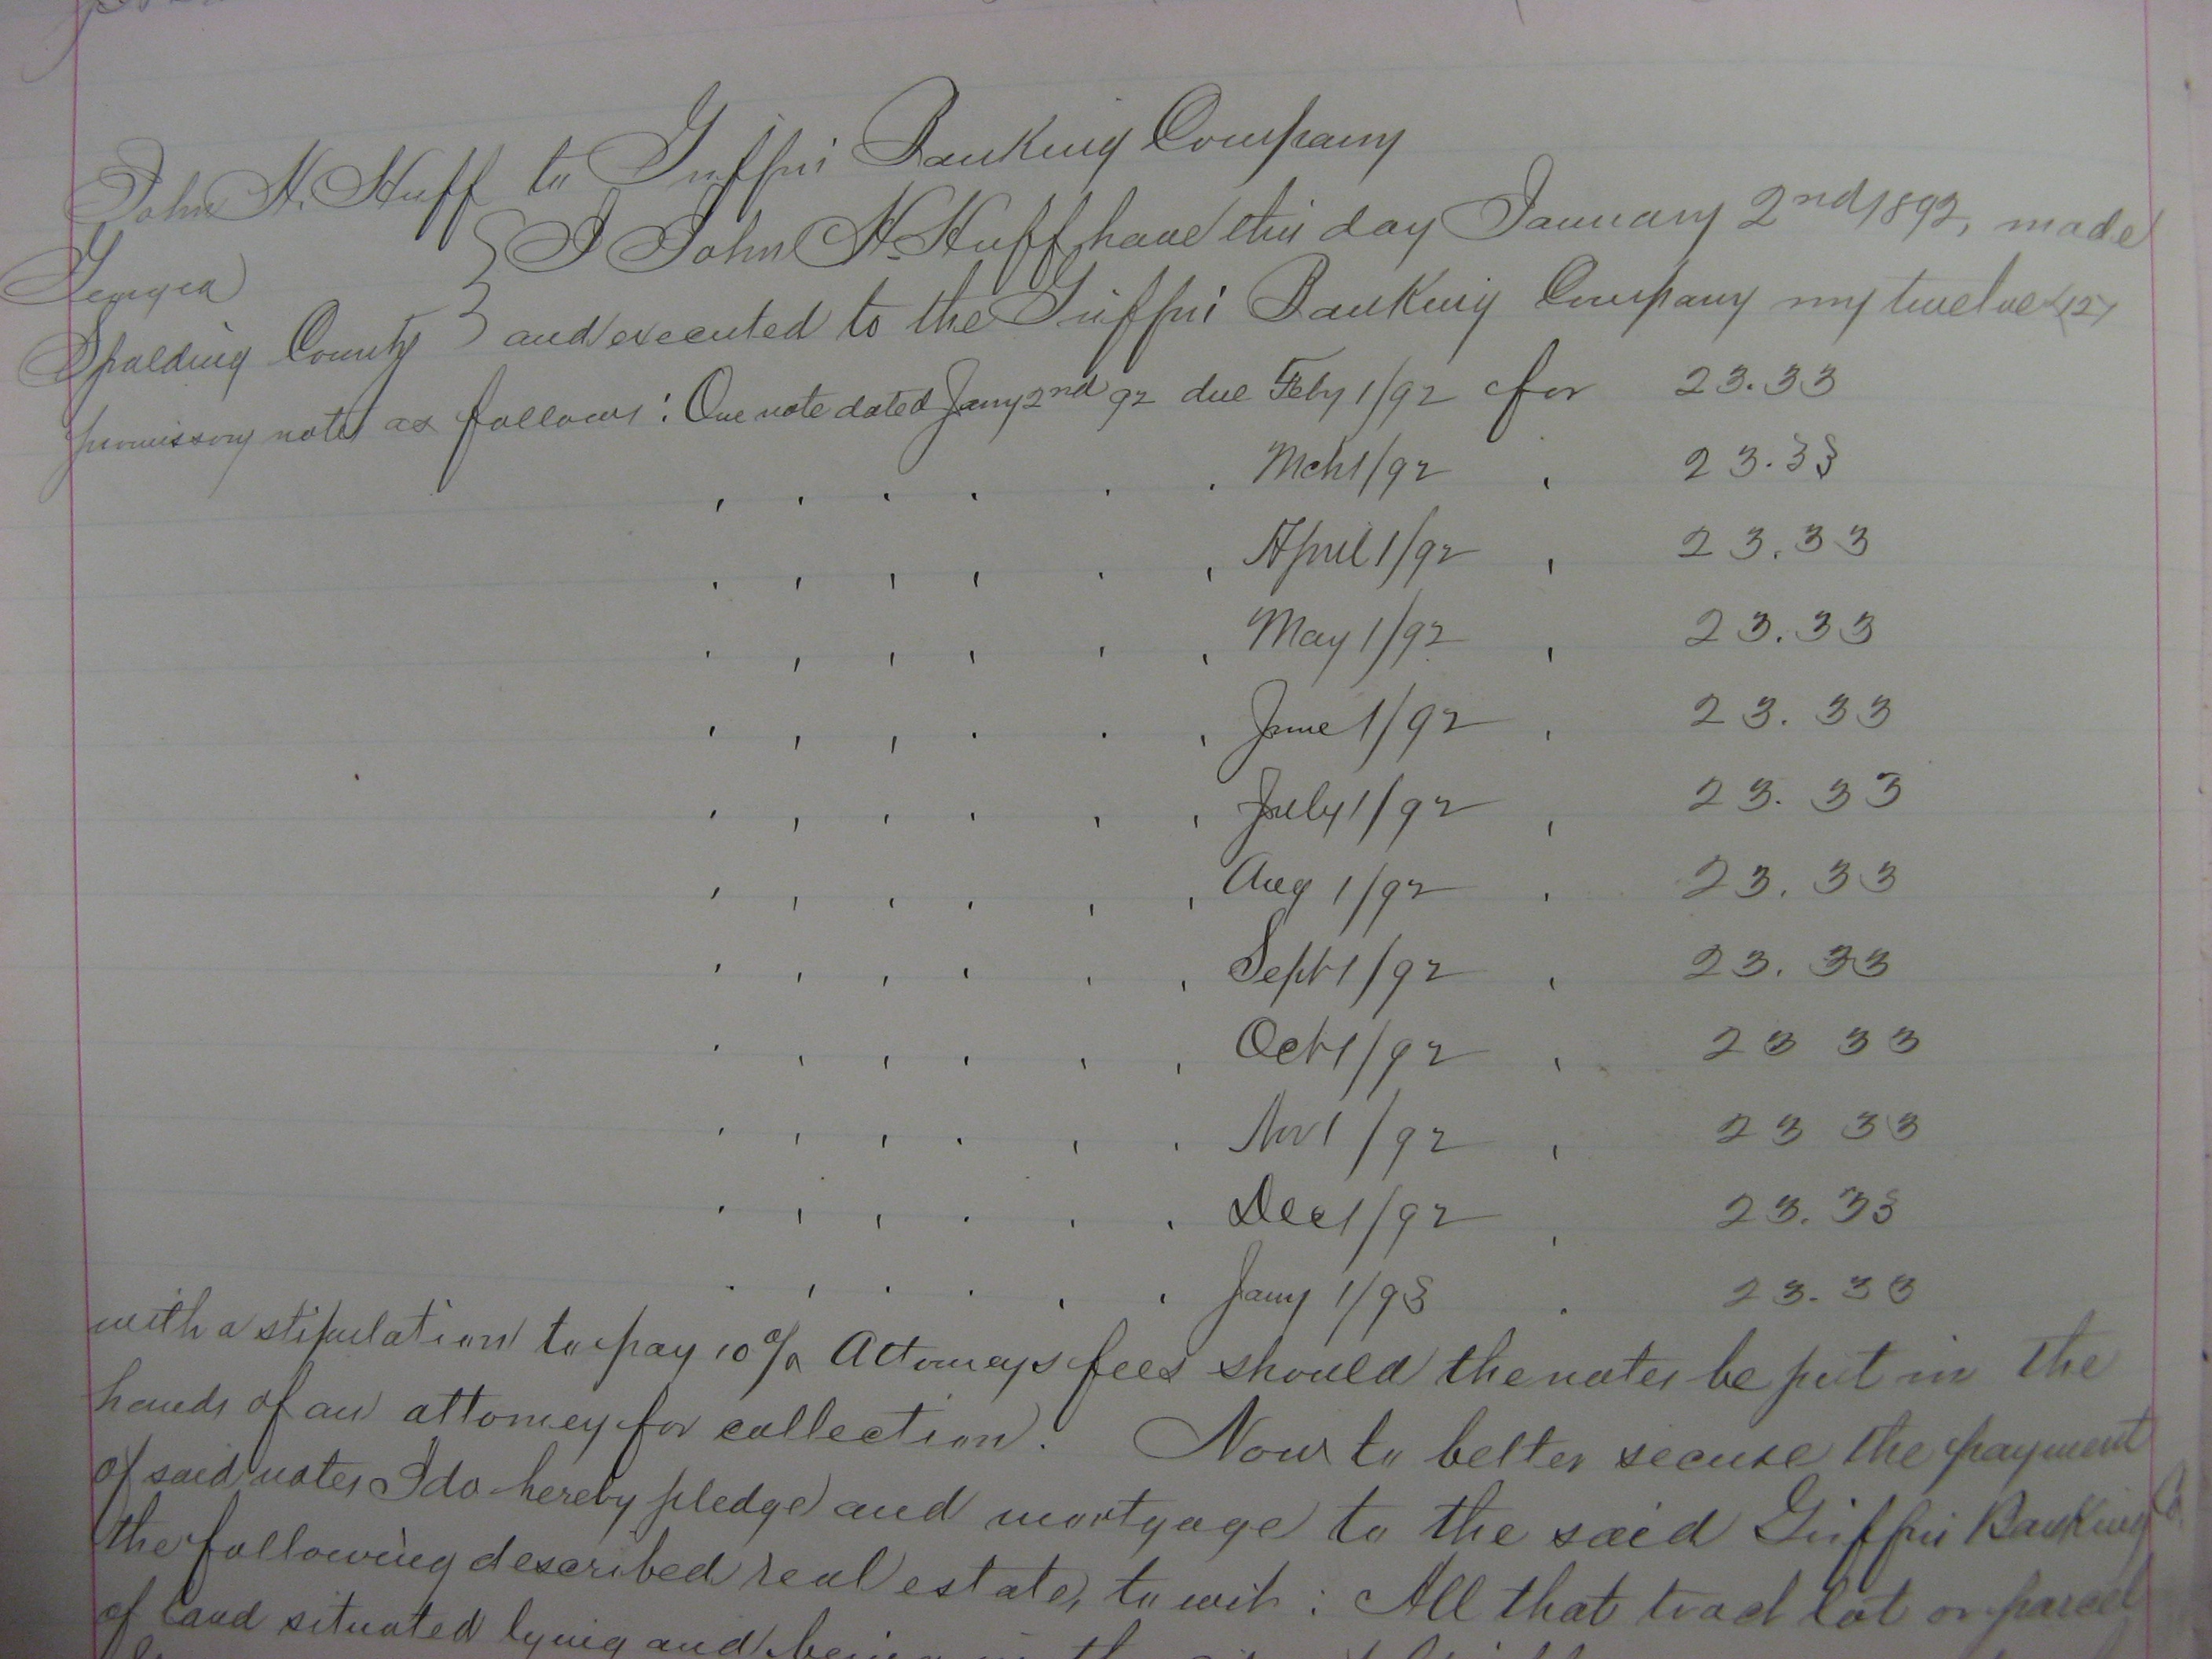 John H. Huff to Griffin Banking Company
Georgia } I John H. Huff have this day January 2nd 1892, made
Spalding County } and executed to the Griffin Banking Company my twelve (12)
promissory notes as follows: One note dated Jany 2nd 92 due Feby 1/92 for 23.33
" " " " " " Mch 1/92 " 23.33
" " " " " " April 1/92 " 23.33
" " " " " " May 1/92 " 23.33
" " " " " " June 1/92 " 23.33
" " " " " " July 1/92 " 23.33
" " " " " " Aug 1/92 " 23.33
" " " " " " Sept 1/92 " 23.33
" " " " " " Oct 1/92 " 23 33
" " " " " " Nov 1/92 " 23 33
" " " " " " Dec 1/92 " 23.33
" " " " " " Jany 1/93 " 23.33
with a stipulation to pay 10% Attorneys fees should the notes be put in the
hands of an attorney for collection. Now to better secure the payment
of said notes I do hereby pledge and mortgage to the said Griffin Banking Co.
the following described real estate, to wit: All that tract lot or parcel
of land situated lying and being in the